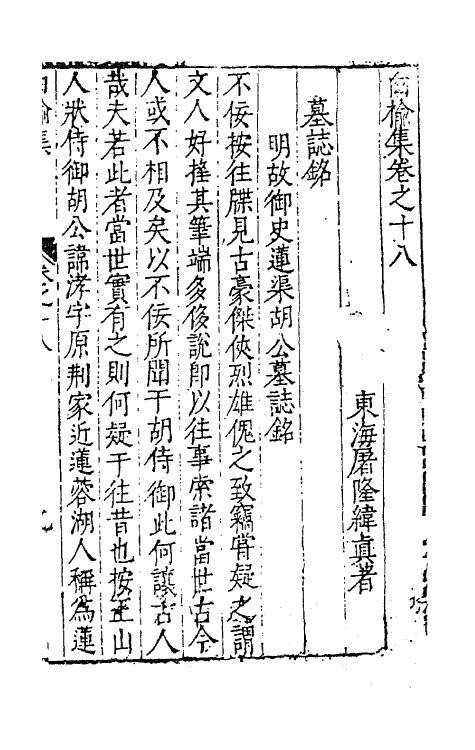 白榆集卷之十八
東海屠隆緯眞著
墓誌銘
明故御史蓮渠胡公墓誌銘
不佞按往牒見古豪傑俠烈雄傀之致竊甞疑之謂
文人好摛其筆端多侈說即以往事索諸當世古今
人或不相及矣以不佞所聞于胡侍御此何讓古人
哉夫若此者當世實有之則何疑于往昔也按王山
人狀侍御胡公諱涍字原荆家近蓮蓉湖人稱爲蓮
白榆集
卷之十八